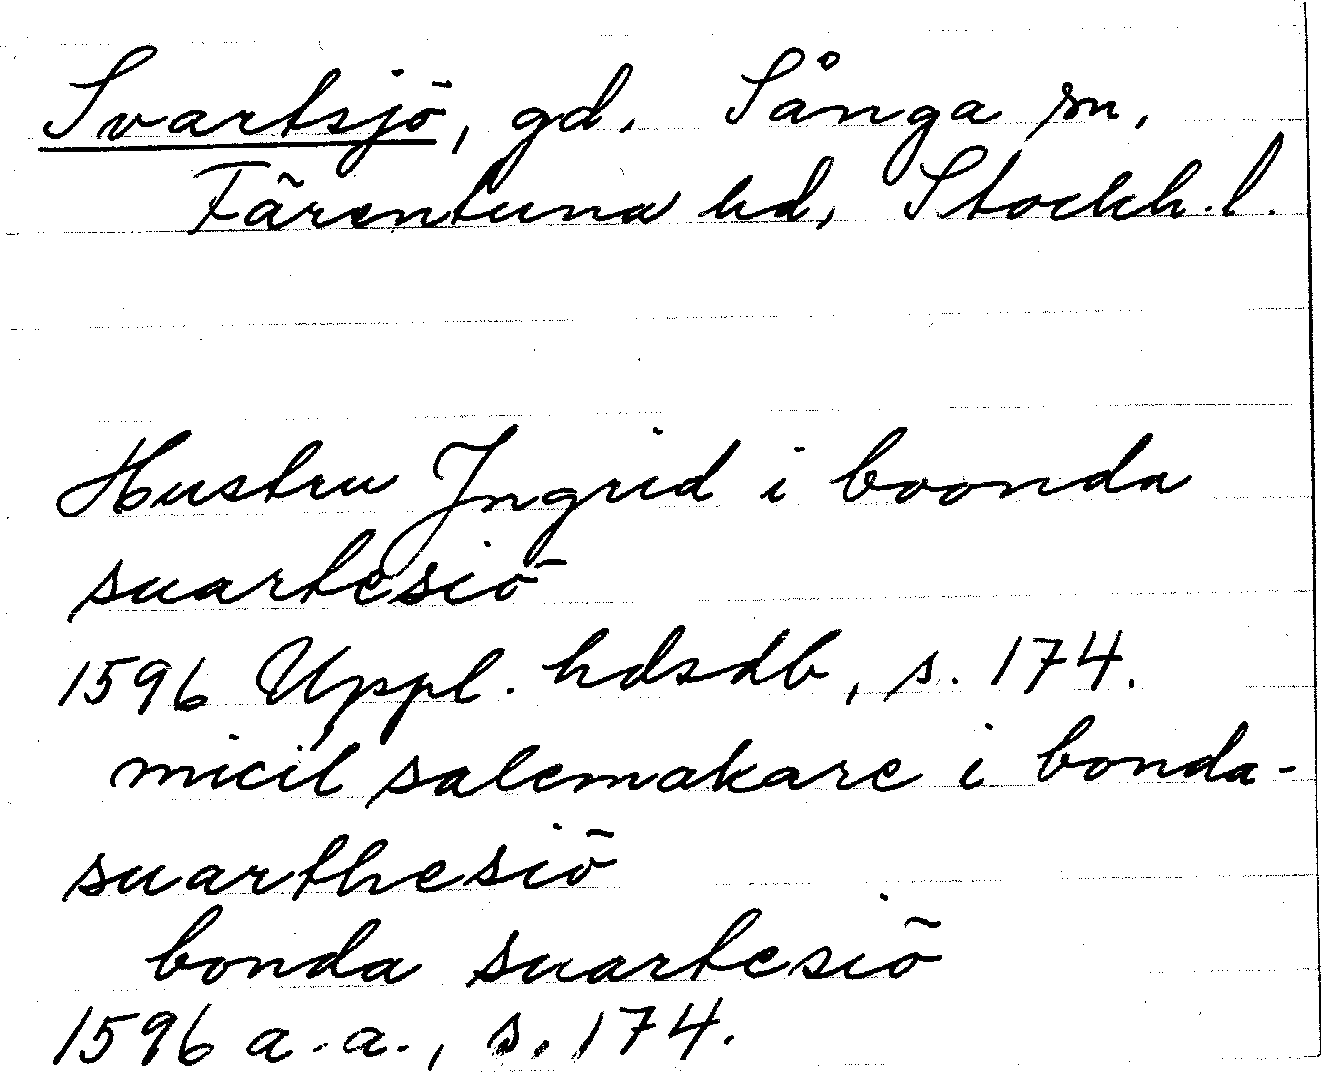 Svartsjö, gd. Sånga sn,
Färentuna hd, Stockh. l.
Hustru Jngrid i boonda
suartesiö
1596 Uppl. hdsdb, s. 174.
micil salemakare i bonda-
suarthesiö
bonda suartesiö
1596 a.a., s. 174.